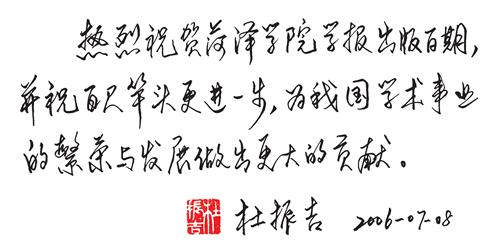 热烈祝贺菏泽学院学报出版百期，
并祝百尺竿头更进一步，为我国学术事业
的繁荣与发展做出更大的贡献。
杜振吉 杜振吉 2006-07-08